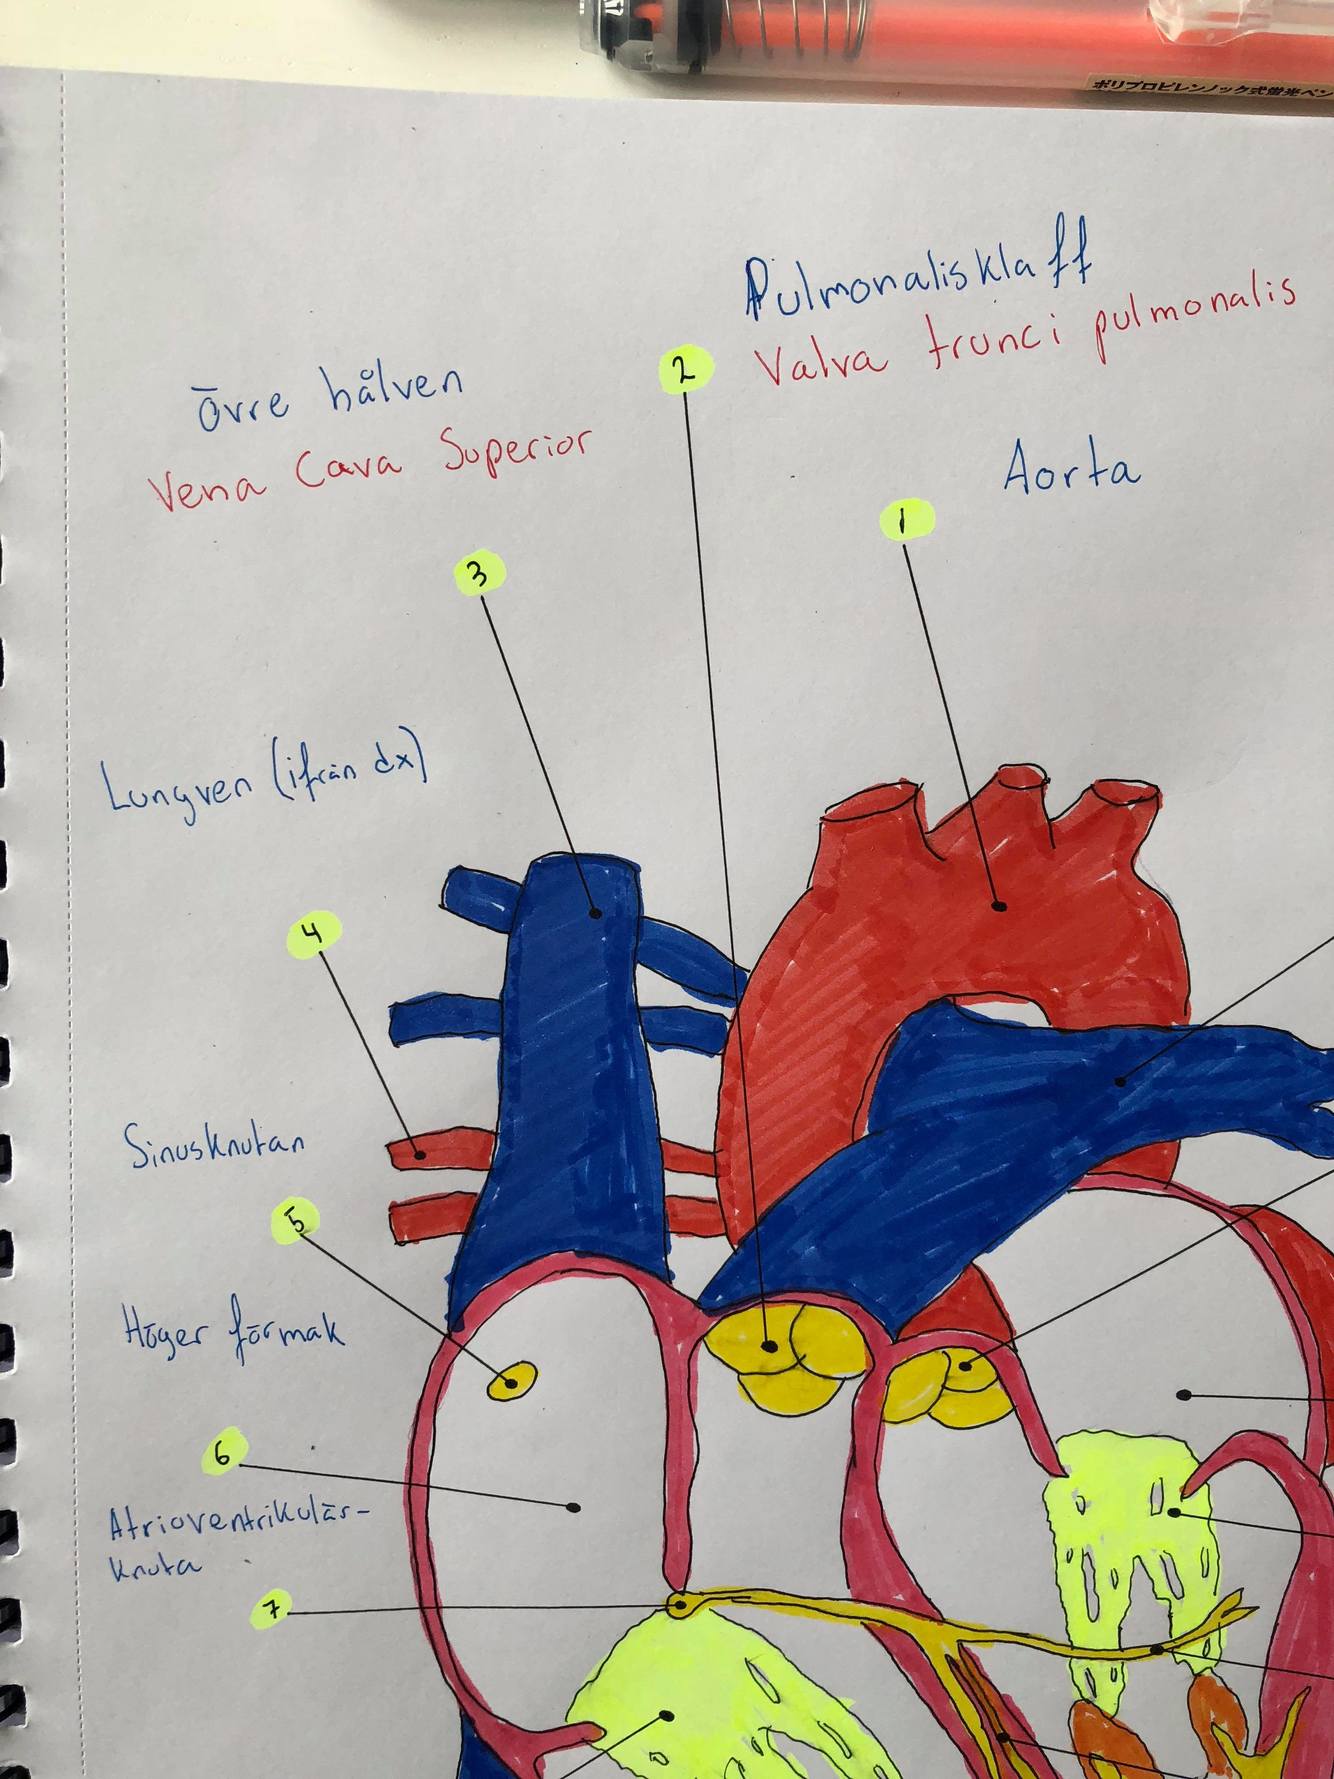 ポリプロピレンノック式蛍光ペン
Pulmonalisklaff
Valva trunci pulmonalis
2
Övre hålven
Vena Cava Superior
Aorta
1
3
Lungven (ifrån dx)
4
Sinusknutan
5
Höger förmak
6
Atrioventrikulär-
knuta
7